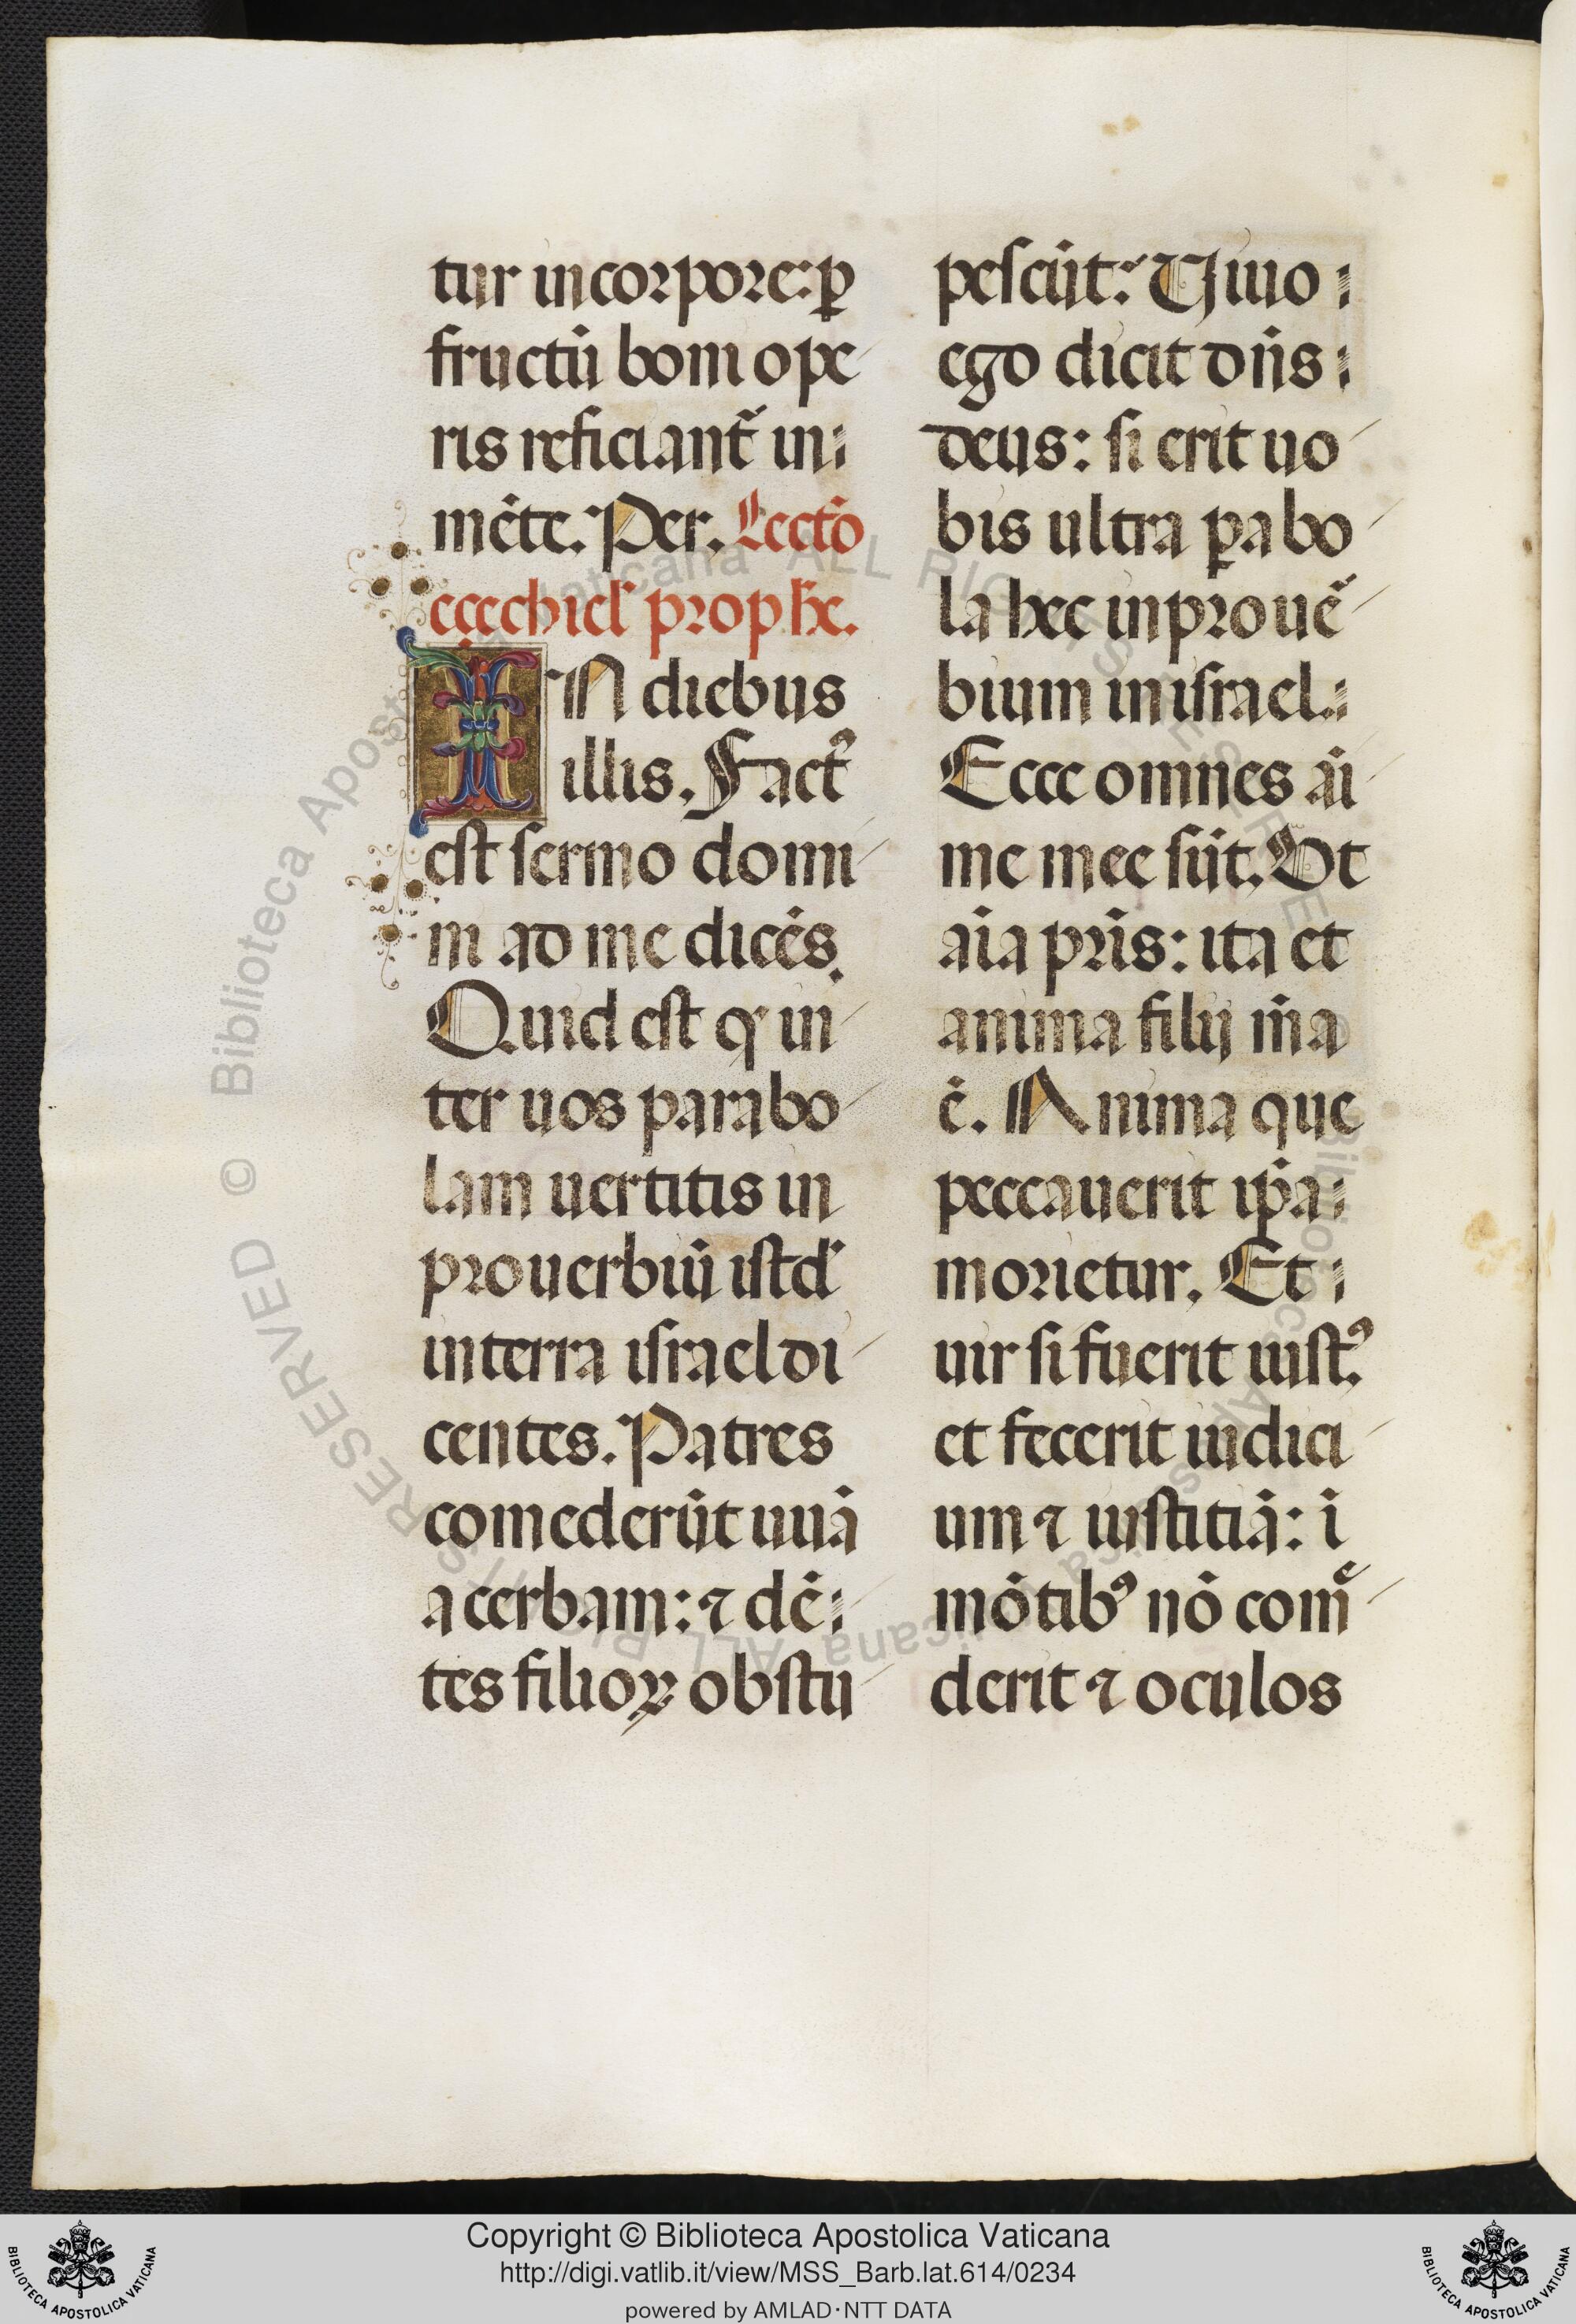 tur in corpore: ꝑ
fructū boni ope
ris reficiant᷑ in
mēte. Per. Lectō
eçechiel᷑ prophe.
IN diebus
illis. Factꝰ
est sermo domi
ni ad me dicēs.
Quid est ꝙ in
ter uos parabo
lam uertitis in
prouerbiū istd᷑
in terra israel di
centes. Patres
comederūt uuā
acerbam: ⁊ dē
tes filioꝝ obstu
pescūt? Viuo
ego dicit dn̄s
deus: si erit uo
bis ultra ꝑabo
la hec in prouē
bium in israel.
Ecce omnes āi
me mee sūt. Vt
aīa pr̄is: ita et
anima filij m̄a
ē. Anima que
peccauerit ip̄a
morietur. Et
uir si fuerit iustꝰ
et fecerit iudici
um ⁊ iustitiā: ī
mōtibꝰ nō com̄
derit ⁊ oculos
© Biblioteca Apostolica Vaticana ALL RIGHTS RESERVED
Copyright © Biblioteca Apostolica Vaticana
http://digi.vatlib.it/view/MSS_Barb.lat.614/0234
powered by AMLAD·NTT DATA
BIBLIOTECA APOSTOLICA VATICANA
BIBLIOTECA APOSTOLICA VATICANA